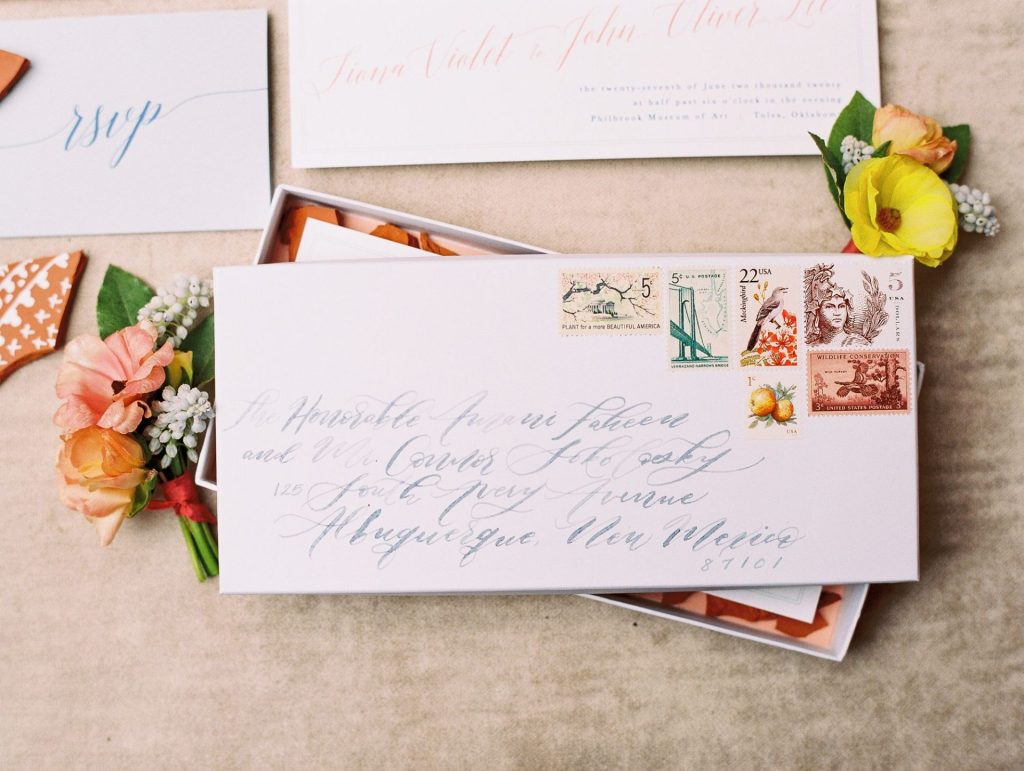 rsvp
Fiona Violet to John Oliver Lee
the twenty-seventh of June two thousand twenty
at half past six o'clock in the evening
Philbrook Museum of Art Tulsa, Oklahoma
5¢
PLANT for a more BEAUTIFUL AMERICA
5¢ U.S. POSTAGE
VERRAZANO-NARROWS BRIDGE
22 USA
Mockingbird
5
USA
DOLLARS
WILDLIFE CONSERVATION
WILD TURKEY
3¢ UNITED STATES POSTAGE
1¢
USA
The Honorable Amani Faheen
and Mr. Connor
125 South Avery Avenue
Albuquerque, New Mexico
87101